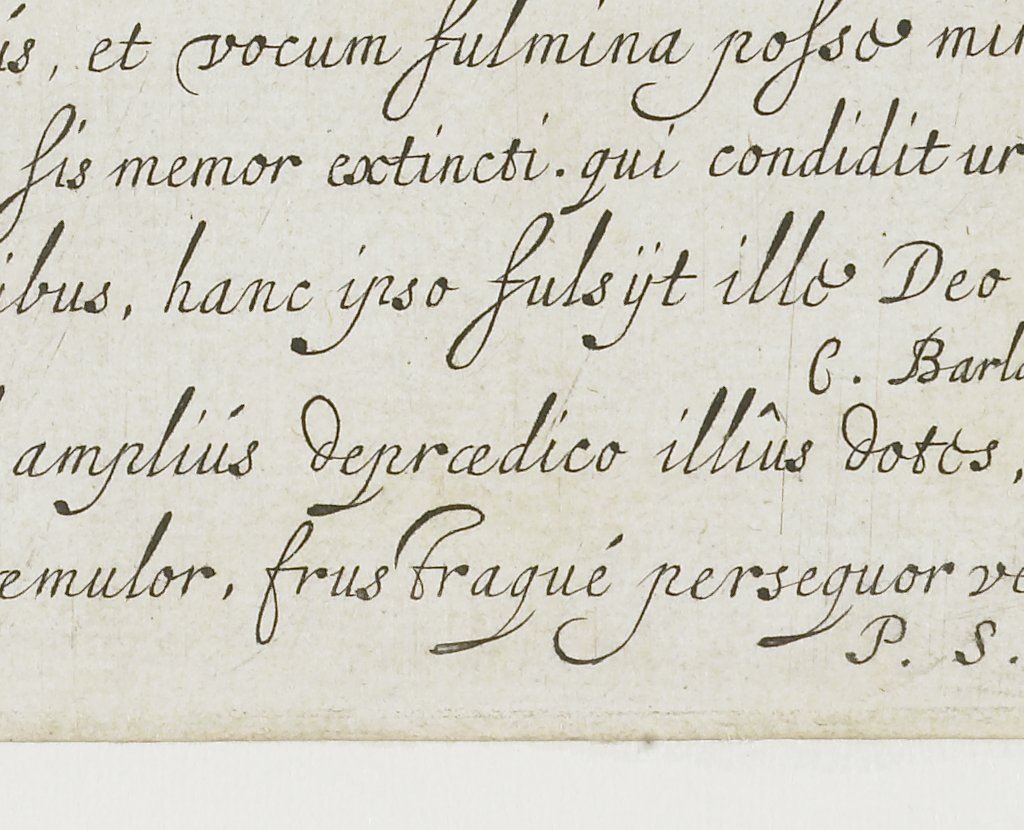 is, et vocum fulmina posse min
sis memor extincti. qui condidit ur
ibus, hanc ipso fulsijt ille Deo
C. Barl
ampliús deprædico illîus dotes,
æmulor, frustraqué persequor ve
P. S.